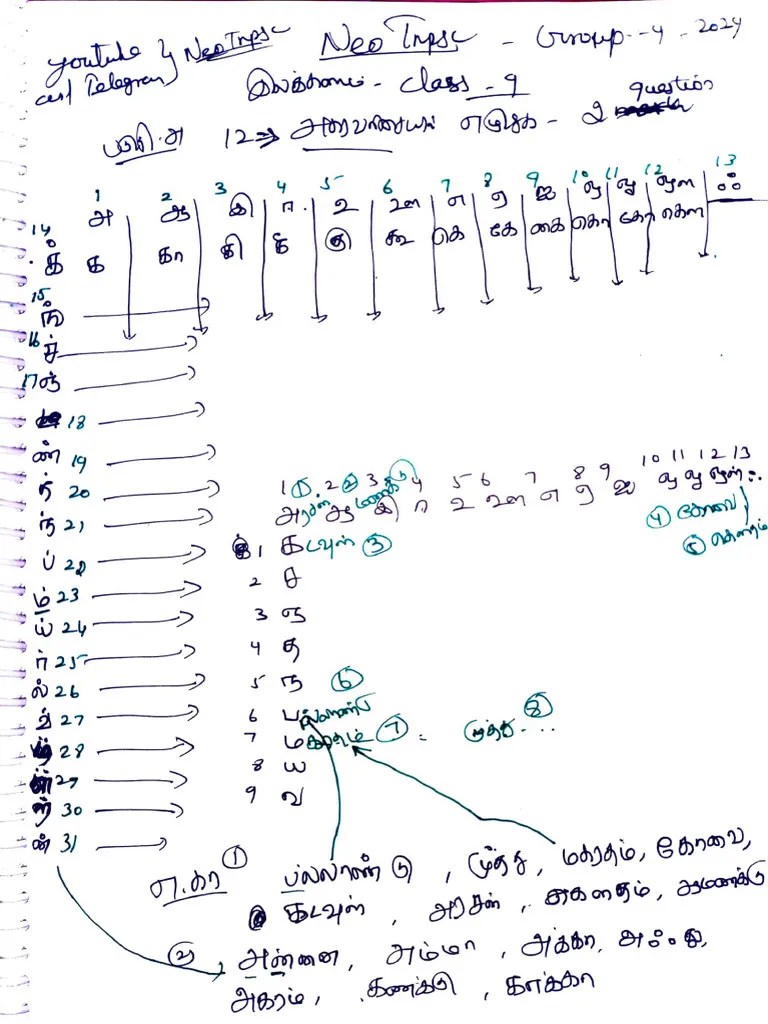 youtube & NeoTnpsc NeoTnpsc - Group - 4 - 2024
and Telegram இலக்கணம் - class - 9
பகுதி.அ 12 ⇒ அகரவரிசையில் எழுதுக - 2 question
1 2 3 4 5 6 7 8 9 10 11 12 13
அ ஆ இ ஈ உ ஊ எ ஏ ஐ ஒ ஓ ஔ ஃ
14 க் க கா கி கீ கு கூ கெ கே கை கொ கோ கௌ
15 ங்
16 ச்
17 ஞ்
18
ண் 19
த் 20
ந் 21
ப் 22
ம் 23
ய் 24
ர் 25
ல் 26
வ் 27
ழ் 28
29
ற் 30
ன் 31
1 ① 2 ② 3 4 5 6 7 8 9 10 11 12 13
அரசன் ஆமணக்கு இ ஈ உ ஊ எ ஏ ஐ ஒ ஓ ஔ ஃ
④ கோவை
1 கடவுள் ③ ⑤ கௌதம்
2 ச
3 ஞ
4 த
5 ந ⑥
6 பல்லாண்டு
7 மகரதம் ⑦ முத்து ⑧
8 ய
9 வ
எ.கா ① பல்லாண்டு, முத்து, மகரதம், கோவை,
கடவுள், அரசன், கௌதம், ஆமணக்கு
② அன்னை, அம்மா, அக்கா, அஃது,
அகரம், கணக்கு, காக்கா